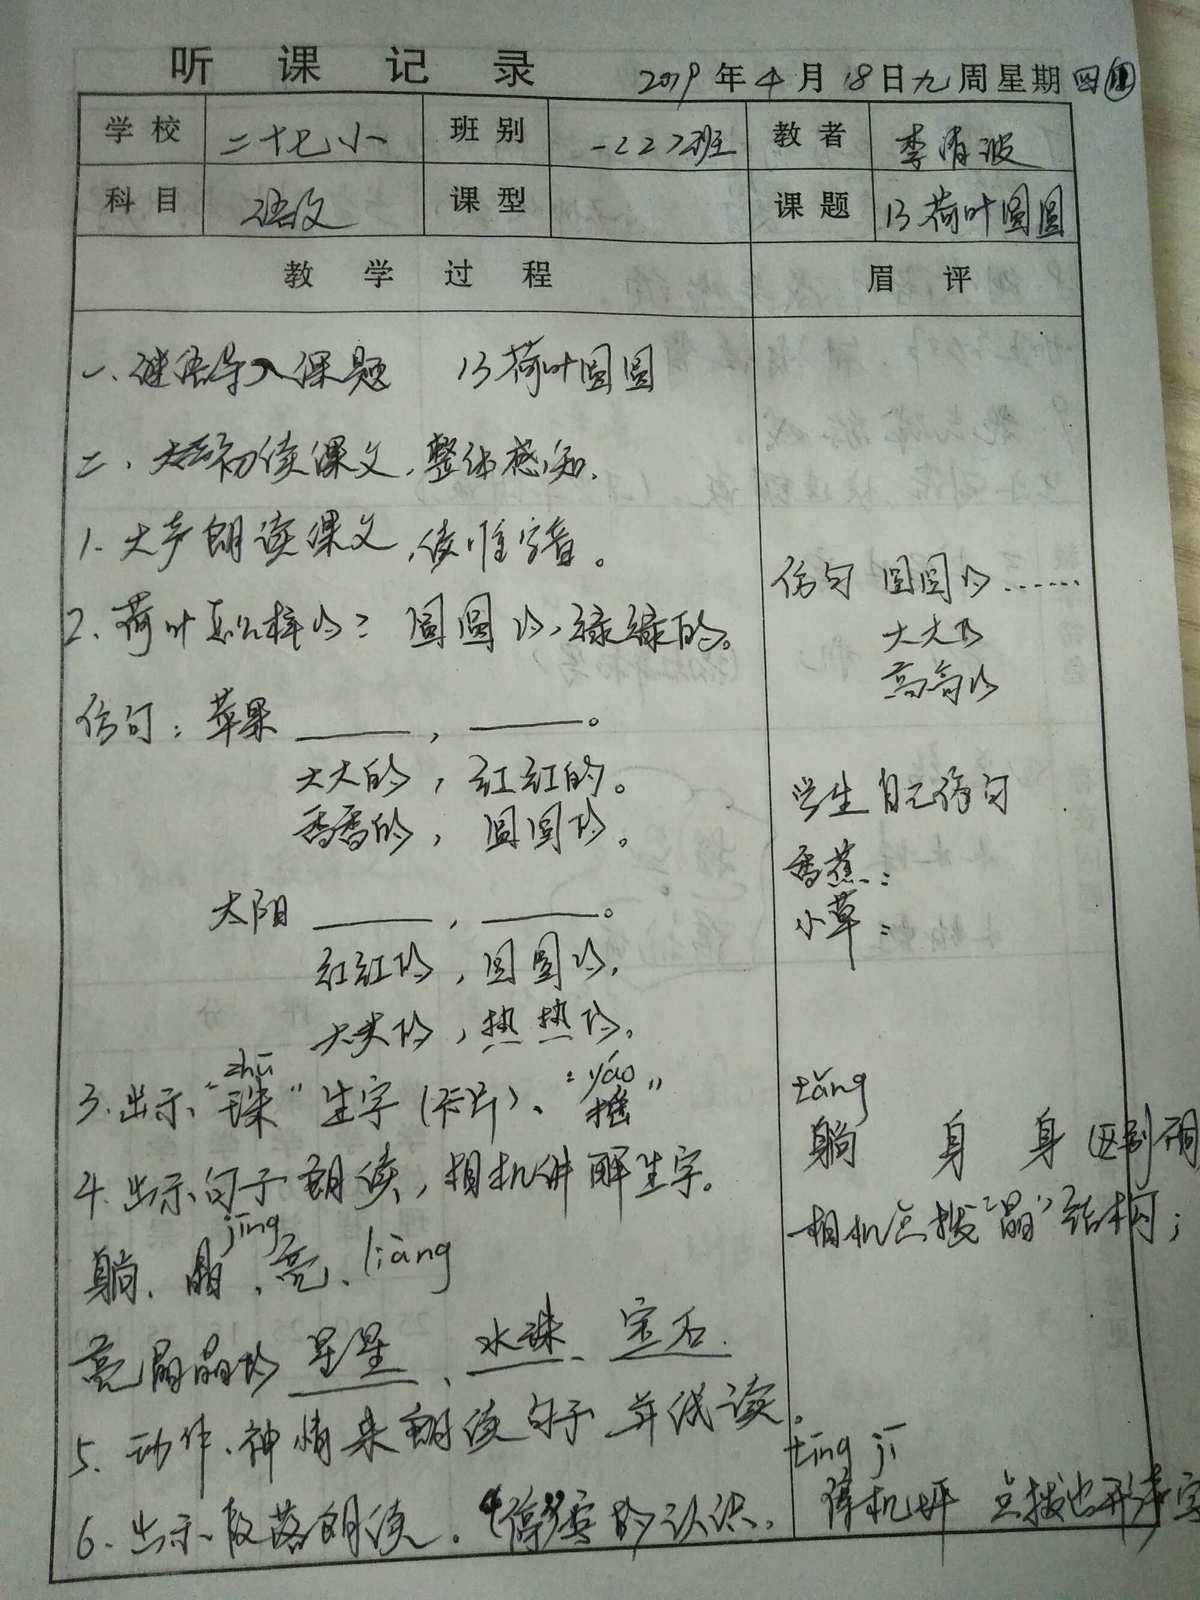 听课记录 2019年4月18日九周星期四
学校 二十七小 班别 一227班 教者 李清波
科目 语文 课型 课题 13荷叶圆圆
教学过程 眉评
一、谜语导入课题 13荷叶圆圆
二、初读课文,整体感知.
1. 大声朗读课文,读准字音。
2. 荷叶怎么样的? 圆圆的,绿绿的。
仿句 圆圆的……
大大的
高高的
仿句:苹果 ____,____。
大大的,红红的。
香香的,圆圆的。
学生自己仿句
香蕉:
小草:
太阳 ____,____。
红红的,圆圆的,
大大的,热热的。
zhū yáo
3.出示“珠”生字(卡片)、“摇”
4.出示句子朗读,相机讲解生字。
jīng
躺、晶、亮、liàng
tǎng
躺 身 身 区别
相机点拨“晶”结构;
亮晶晶的 星星、水珠、宝石.
5. 动作、神情来朗读句子 并线读。
6.出示段落朗读.“停”的认识,
tíng jī
停机坪 点拨出形声字